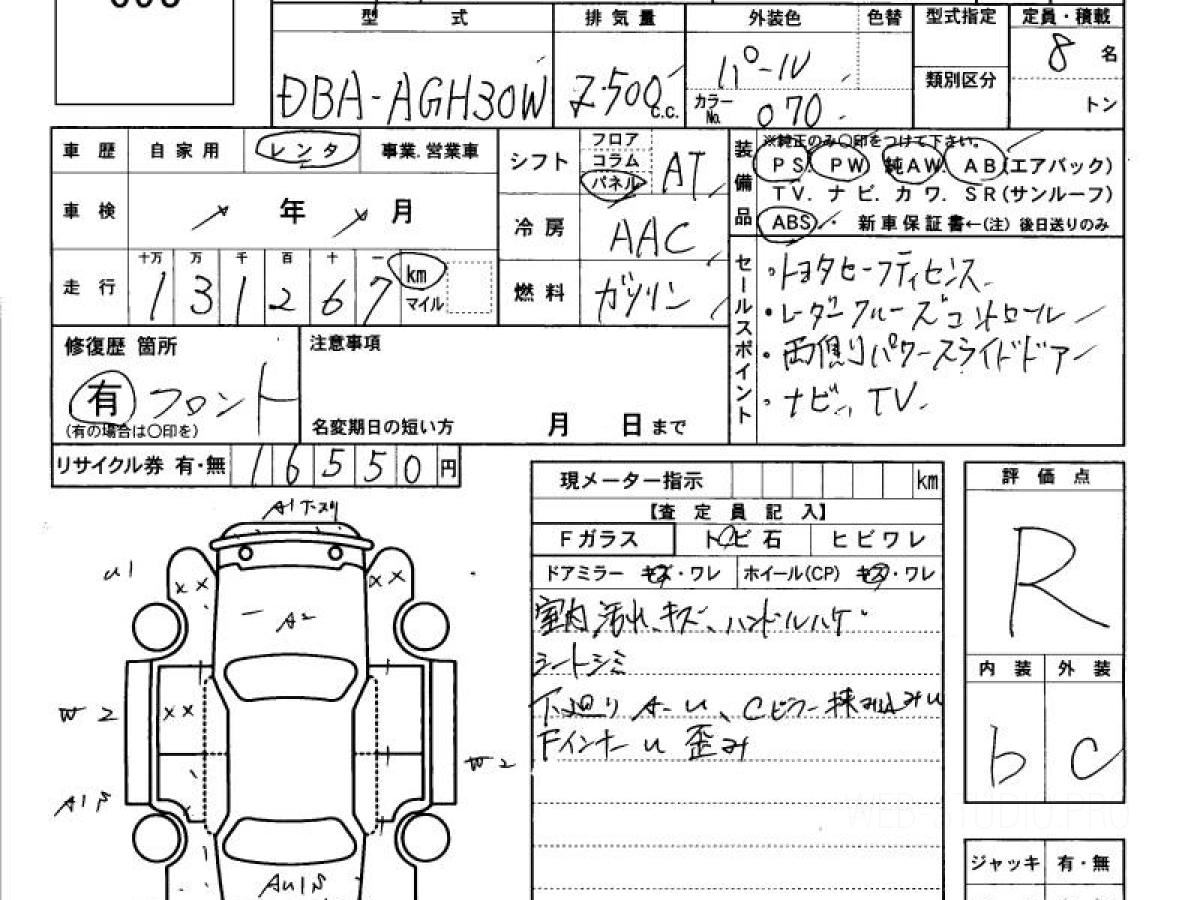 型 式 排 気 量 外装色 色替 型式指定 定員・積載
DBA-AGH30W 2.500 c.c. パール 8 名
カラーNo. 070 類別区分 トン
車 歴 自 家 用 レ ン タ 事業.営業車
シフト フロア コラム パネル AT
装備品 ※純正のみ○印をつけて下さい。
PS. PW. 純AW. AB(エアバック)
TV. ナ ビ. カ ワ. SR(サンルーフ)
ABS 新 車 保 証 書 ←(注) 後日送りのみ
車 検 年 月
冷 房 AAC
走 行 十万 万 千 百 十 一
1 3 1 2 6 7 km マイル
燃 料 ガソリン
セールスポイント
・トヨタセーフティセンス
・レーダークルーズコントロール
・両側パワースライドドアー
・ナビ、TV
修復歴 箇所
有 フロント
(有の場合は○印を)
注意事項
名変期日の短い方 月 日 まで
リサイクル券 有・無 1 6 5 5 0 円
現メーター指示 km
【査 定 員 記 入】
Fガラス トビ石 ヒビワレ
ドアミラー キズ・ワレ ホイール(CP) キズ・ワレ
室内汚れ、キズ、ハンドルハゲ
シートシミ
下廻り A-U、Cピラー挟み込みU
FインナーU 歪み
評 価 点
R
内 装 外 装
b C
ジャッキ 有・無
U1
×× ××
A2
W2
××
W2
WEB-STUDIO.PRO